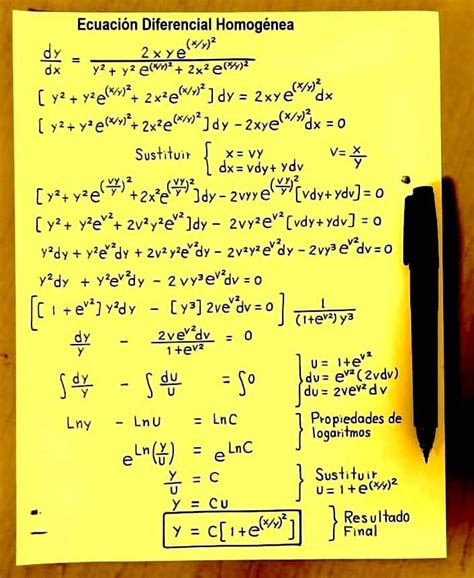 Ecuación Diferencial Homogénea
dy/dx = 2xye^(x/y)² / y² + y²e^(x/y)² + 2x²e^(x/y)²
[y² + y²e^(x/y)² + 2x²e^(x/y)²]dy = 2xye^(x/y)²dx
[y² + y²e^(x/y)² + 2x²e^(x/y)²]dy - 2xye^(x/y)²dx = 0
Sustituir { x = vy V = x/y
dx = vdy + ydv
[y² + y²e^(vy/y)² + 2x²e^(vy/y)²]dy - 2vyye^(vy/y)²[vdy + ydv] = 0
[y² + y²e^v² + 2v²y²e^v²]dy - 2vy²e^v²[vdy + ydv] = 0
y²dy + y²e^v²dy + 2v²y²e^v²dy - 2v²y²e^v²dy - 2vy³e^v²dv = 0
y²dy + y²e^v²dy - 2vy³e^v²dv = 0
[[1 + e^v²]y²dy - [y³]2ve^v²dv = 0] 1/(1+e^v²)y³
dy/y - 2ve^v²dv/1+e^v² = 0
∫dy/y - ∫du/u = ∫0 } u = 1+e^v²
du = e^v²(2vdv)
du = 2ve^v²dv
Lny - Lnu = LnC } Propiedades de
logaritmos
e^Ln(y/u) = e^LnC
y/u = C } Sustituir
u = 1 + e^(x/y)²
y = Cu
y = C[1 + e^(x/y)²] } Resultado
Final